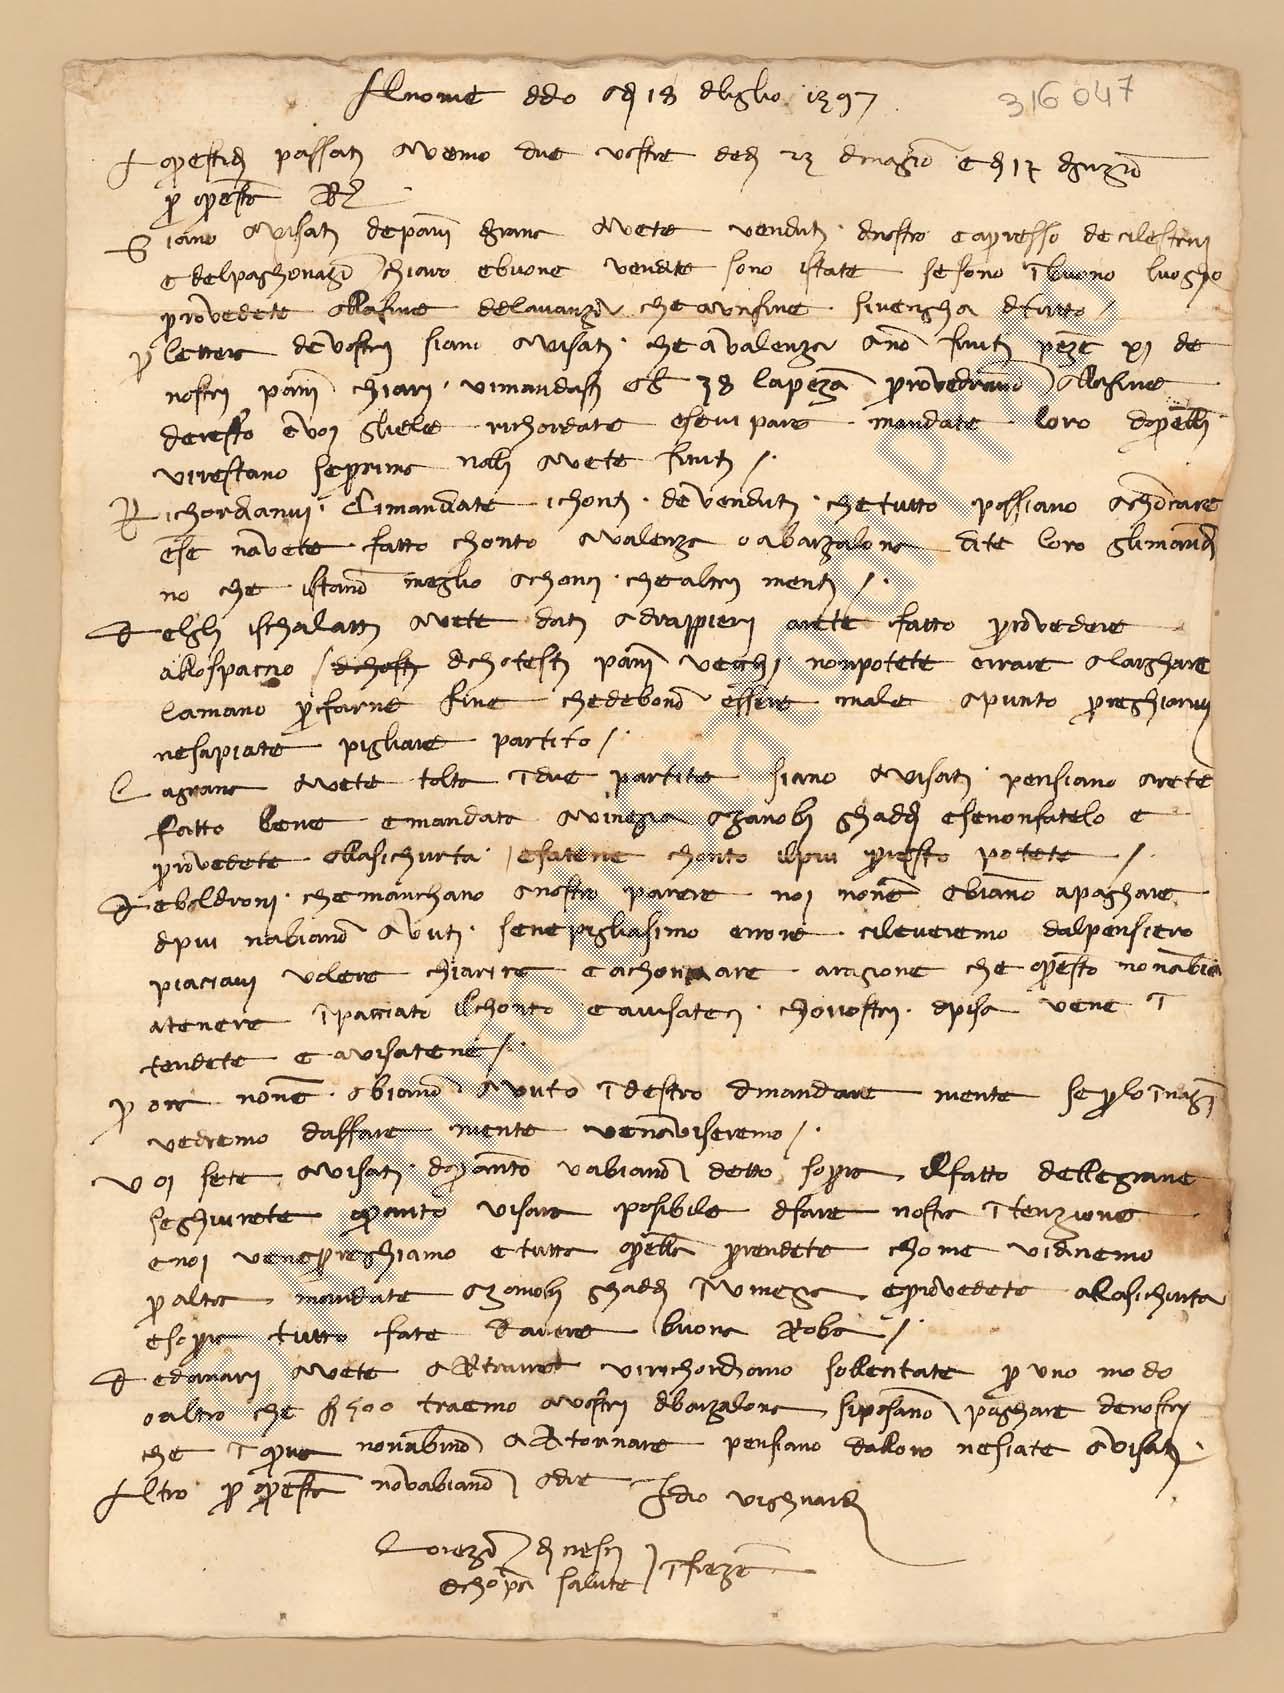 Al nome di dio a dì 18 di luglio 1397
316047
A questi dì passati avemo due vostre de dì 23 di magio e dì 17 di giugnio
per questa R
Siamo avisati de panni di grana avete venduti di nostro e apresso de cilestrini
e del paghonazo chiaro e buone vendite sono istate se sono i buono luogho
provedete alla fine de l'avanzo che a un fine si vengha di tutto /
per lettera de vostri siamo avisati che a Valenza ano finiti peze XI de
nostri panni chiari vi mandasti a lb 38 la peza provedranno alla fine
de resto e voi gliele richordate e se vi pare mandate loro di quelli
vi restano se prima no gli avete finiti /
Richordianvi ci mandiate i chonti de venduti che tutto possiano achoncare
e se n'avete fatto chonto a Valenza o a Barzalona dite loro gli manda
no che istanno meglio achonci che altri menti /.
Degli ischalatti avete dati a drappieri arete fatto provedere
allo spaccio / di chotesti panni vecchi non potete errare a larghare
la mano per farne fine che debono essere male a punto preghianvi
ne sapiate pigliare partito /.
La grana avete tolta i due partite siano avisati pensiano arete
fatto bene e mandata a Vinegia a Zanobi Ghaddi e se non fatelo e
provedete alla sichurta e fatene chonto il piu presto potete /
De boldroni che manchano a nostro parere noi non e abiano a paghare
di piu n'abiano auti se ne pigliasimo errore ci leveremo dal pensiero
piacciavi volere chiarire e achonciare a ragione che questo non abia
a tenere ipacciato il chonto e avisateci cho vostri di Pisa vene i
tendete e avisatene /.
per ora none abiano auto i destro di mandare niente se per lo inazi
vedremo da ffare niente ve n'aviseremo /.
Voi sete avisati di quanto v'abiano detto sopra il fatto delle grane
seghuirete quanto vi sara posibile di fare nostra itenzione
e noi ve ne preghiamo e tutta quella prendete chome vi dicemo
per altra mandate a Zanobi Ghaddi i Vinegia e provedete alla sichurta
e sopra tutto fate d'avere buona roba /
De danari avete a Rtrarre vi richordiano sollecitate per uno modo
o altro che fi 500 traemo a vostri di Barzalona si posano paghare de nostri
che i qua non abino a Rtornare pensiano da lloro ne siate avisati.
Altro per questa non v'abiano a dire Idio vi ghuardi
Lorenzo di Cresci
e chopa salute } i Firenze